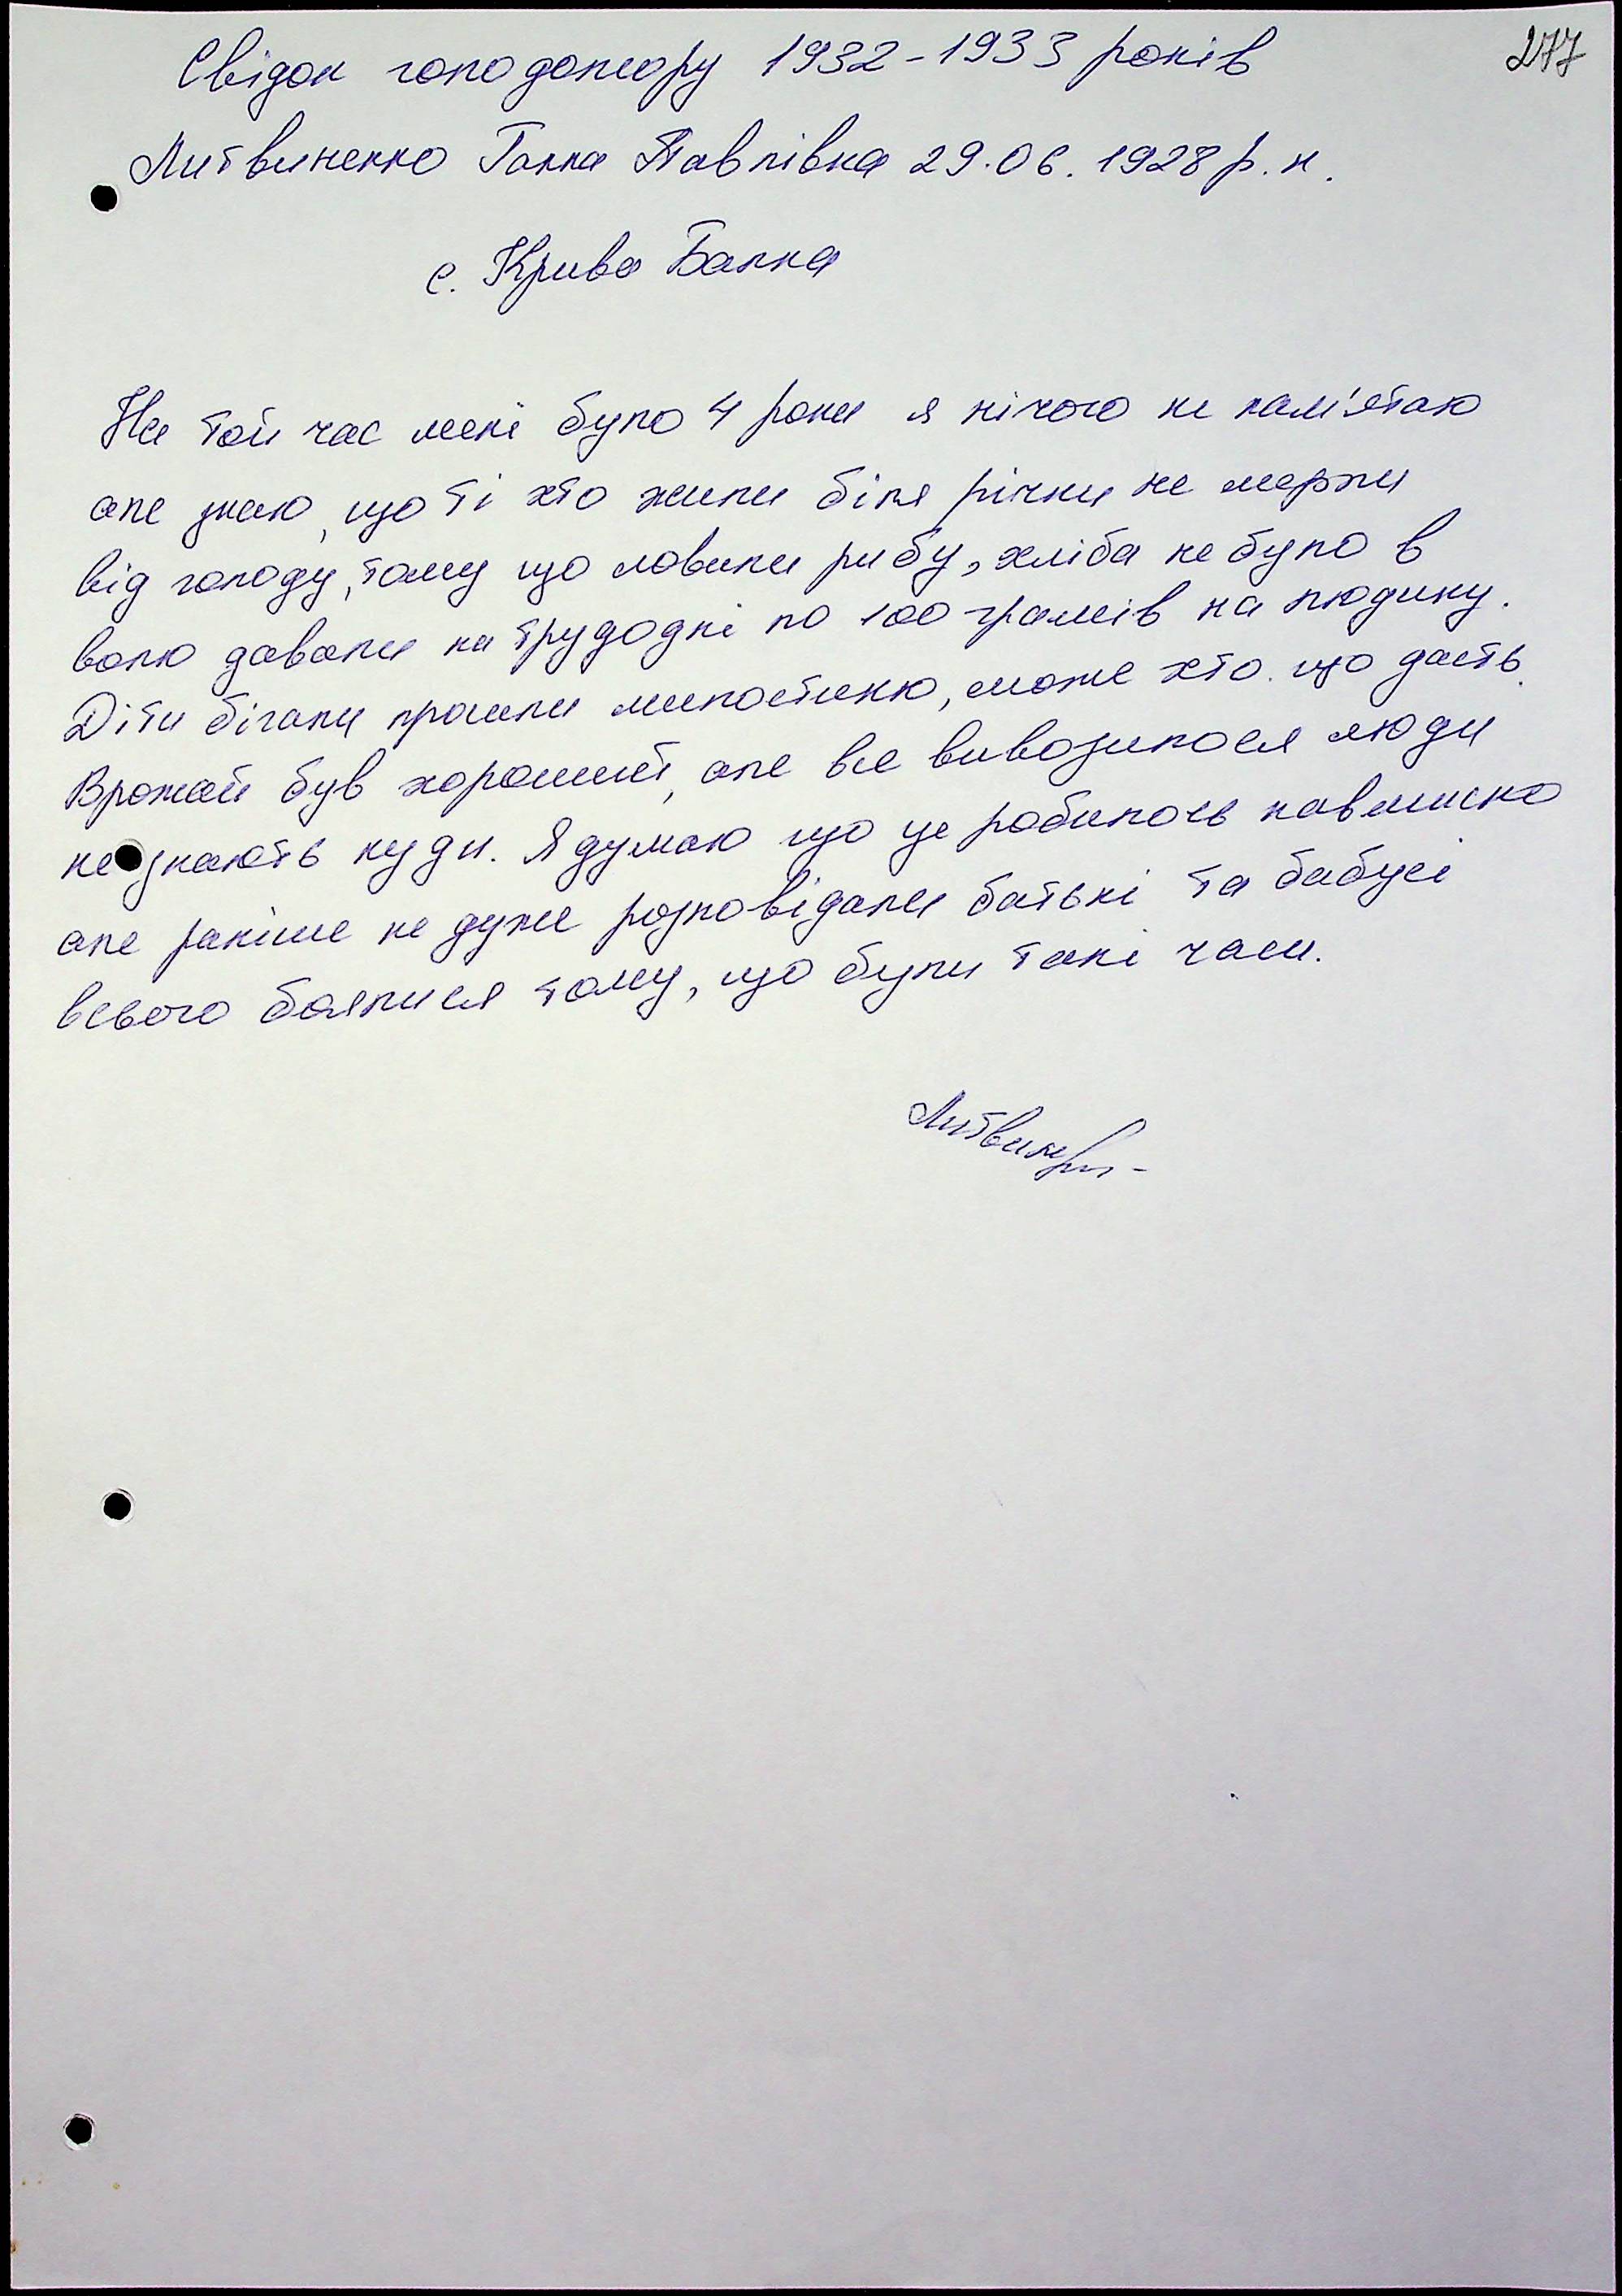 277
Свідок голодомору 1932-1933 років
Литвиненко Ганна Павлівна 29.06.1928 р.н.
с. Крива Балка
На той час мені було 4 роки я нічого не пам'ятаю
але знаю, що ті хто жили біля річки не мерли
від голоду, тому що ловили рибу, хліба не було в
волю давали на трудодні по 100 грамів на людину.
Діти бігали просили милостиню, може хто що дасть.
Врожай був хороший, але все вивозилося люди
не знають куди. Я думаю що це робилось навмисно
але раніше не дуже розповідали батькі та бабусі
всього боялися тому, що були такі часи.